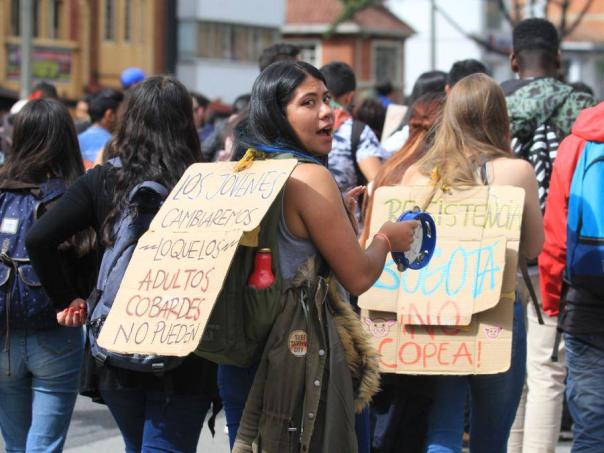 LOS JOVENES
CAMBIAREMOS
LOQUELOS
ADULTOS
COBARDES
NO PUEDEN
RESISTENCIA
BOGOTA
¡NO
COPEA!